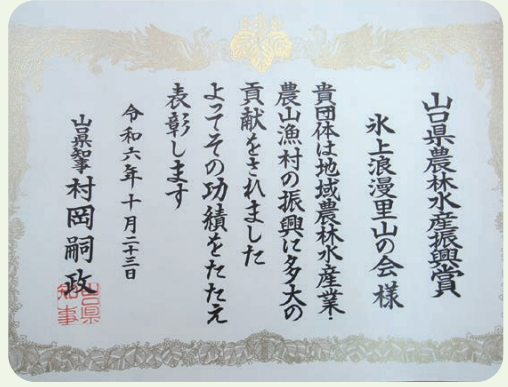 山口県農林水産振興賞
氷上浪漫里山の会様
貴団体は地域農林水産業・
農山漁村の振興に多大の
貢献をされました
よってその功績をたたえ
表彰します
令和六年十月二十三日
山口県知事 村岡嗣政
山口県
知事